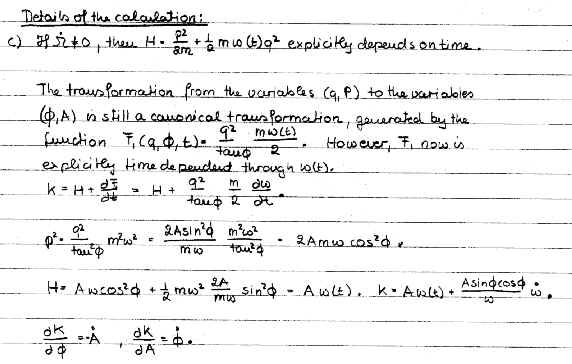 Details of the calculation:
c) If Ṙ ≠ 0, then H = p²/2m + ½ mω(t)q² explicitly depends on time.
The transformation from the variables (q, P) to the variables
(ϕ, A) is still a canonical transformation, generated by the
function F₁(q, ϕ, t) = q²/tanϕ mω(t)/2. However, F₁ now is
explicitly time dependent through ω(t).
K = H + ∂F/∂t = H + q²/tanϕ m/2 ∂ω/∂t.
p² = q²/tan²ϕ m²ω² = 2Asin²ϕ/mω m²ω²/tan²ϕ = 2Amω cos²ϕ.
H = Aωcos²ϕ + ½ mω² 2A/mω sin²ϕ = Aω(t). K = Aω(t) + Asinϕcosϕ/ω ω̇.
∂K/∂ϕ = -Ȧ, ∂K/∂A = ϕ̇.